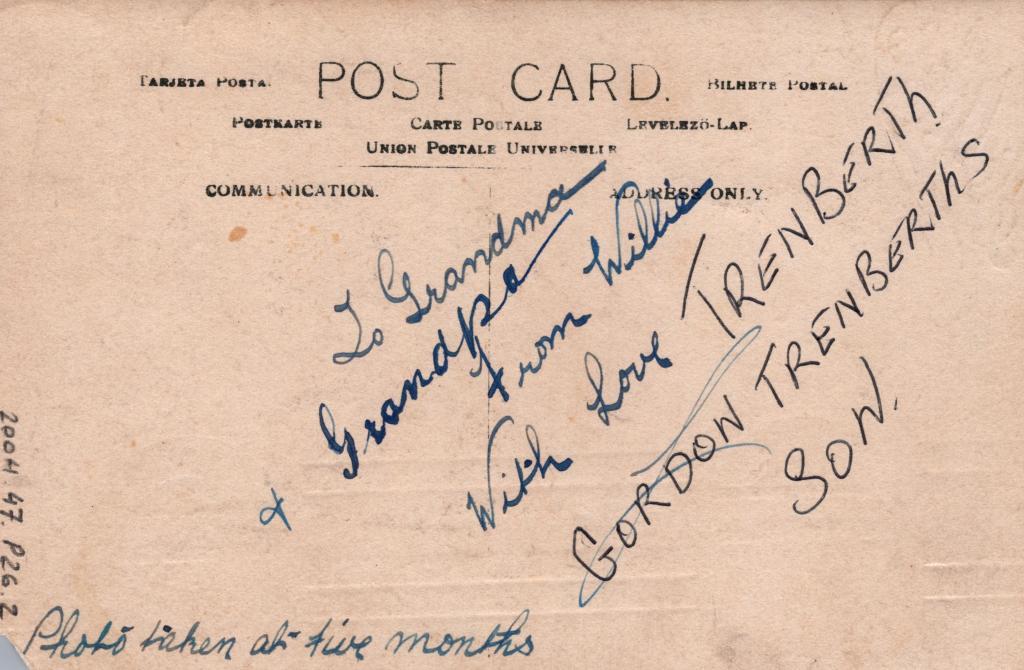 POST CARD.
TARJETA POSTA
BILHETE POSTAL
POSTKARTE
CARTE POSTALE
LEVELEZÖ-LAP.
UNION POSTALE UNIVERSELLE
COMMUNICATION.
ADDRESS ONLY.
To Grandma
+ Grandpa
From Willie
With Love TRENBERTH
GORDON TRENBERTHS
SON.
Photo taken at five months
2004.47.P26.2